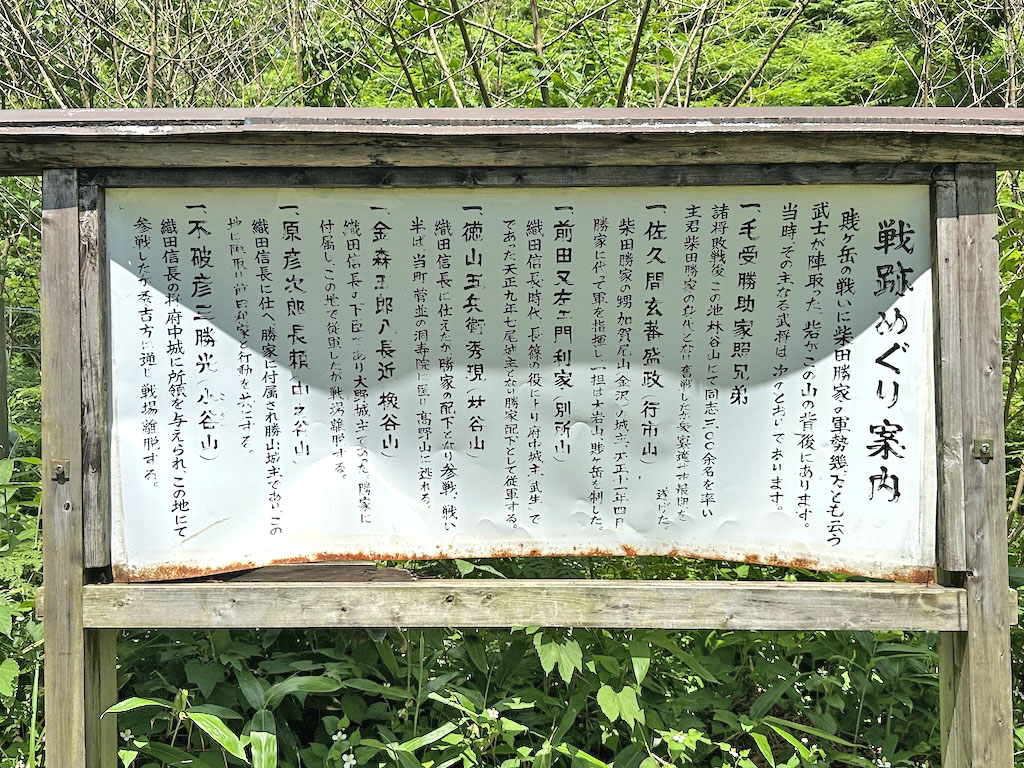 戦跡めぐり案内
賤ヶ岳の戦いに柴田勝家の軍勢幾万とも云う
武士が陣取った砦がこの山の背後にあります。
当時その主なる武将は次のとおりであります。
一、毛受勝助家照兄弟
諸将敗戦後この池林谷山にて同志三〇〇余名を率い
主君柴田勝家の身代となり奮戦した
遂げた。
一、佐久間玄蕃盛政(行市山)
柴田勝家の甥加賀尾山(金沢)の城主、天正十一年四月
勝家に代って軍を指揮し一担は大岩山、賤ヶ岳を制した。
一、前田又左エ門利家(別所山)
織田信長時代、長篠の役により府中城主(武生)で
であった天正九年七尾城主となり勝家配下として従軍する。
一、徳山五兵衛秀現
織田信長に仕えたが勝家の配下となり参戦、戦い
半ば、当所、菅並の洞寿院に匿り高野山に逃れる。
一、金森五郎八長近
織田信長の下臣であり大野城主であった、勝家に
付属し、この地で従軍したが戦場離脱する。
一、原彦次郎長頼
織田信長に仕へ、勝家に付属され勝山城主であり、この
地に陣取り前田利家と行動を共にする。
一、不破彦三勝光(小谷山)
織田信長の折府中城に所領を与えられ、この地にて
参戦したが秀吉方に通じ戦場離脱する。